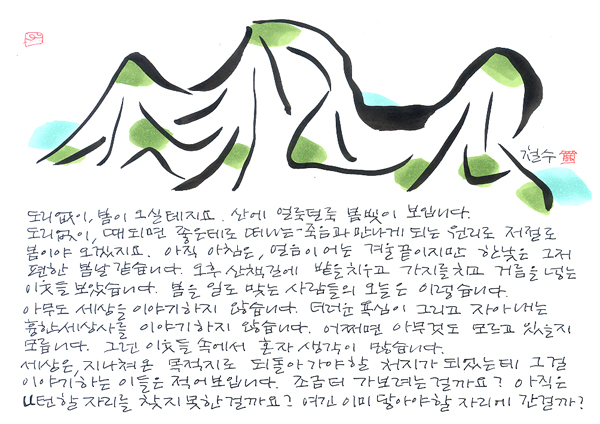 철수
도리없이, 봄이 오실테지요. 산에 얼룩덜룩 봄빛이 보입니다.
도리없이, 때되면 좋은데로 떠나는-죽음과 만나게 되는 원리로 저절로
봄이야 오겠지요. 아직 아침은, 얼음이 어는 겨울끝이지만 한낮은 그저
편한 봄날 같습니다. 오후 산책길에 밭을치우고 가지를치고 거름을 넣는
이웃들 보았습니다. 봄을 일로 맞는 사람들의 오늘은 이렇습니다.
아무도 세상을 이야기하지 않습니다. 더러운 욕심이 그리고 자아내는
흉한세상사를 이야기하지 않습니다. 어쩌면 아무것도 모르고 있을지
모릅니다. 그런 이웃들 속에서 혼자 생각이 많습니다.
세상은, 지나쳐온 목적지로 되돌아가야할 처지가 되었는데 그걸
이야기하는 이들은 적어보입니다. 조금더 가보려는걸까요? 아직은
U턴할 자리를 찾지못한걸까요? 여긴 이미 닿아야할 자리에 간걸까?